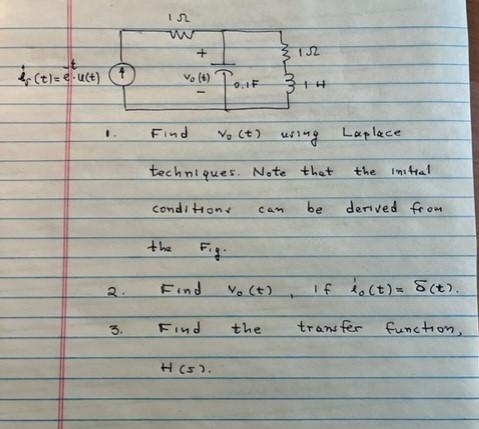 1 Ω
+
1 Ω
i_s(t) = e^{-t}·u(t)
v_o(t)
0.1F
1 H
−
1. Find v_o(t) using Laplace
techniques. Note that the initial
conditions can be derived from
the Fig.
2. Find v_o(t), if i_o(t) = δ(t).
3. Find the transfer function,
H(s).